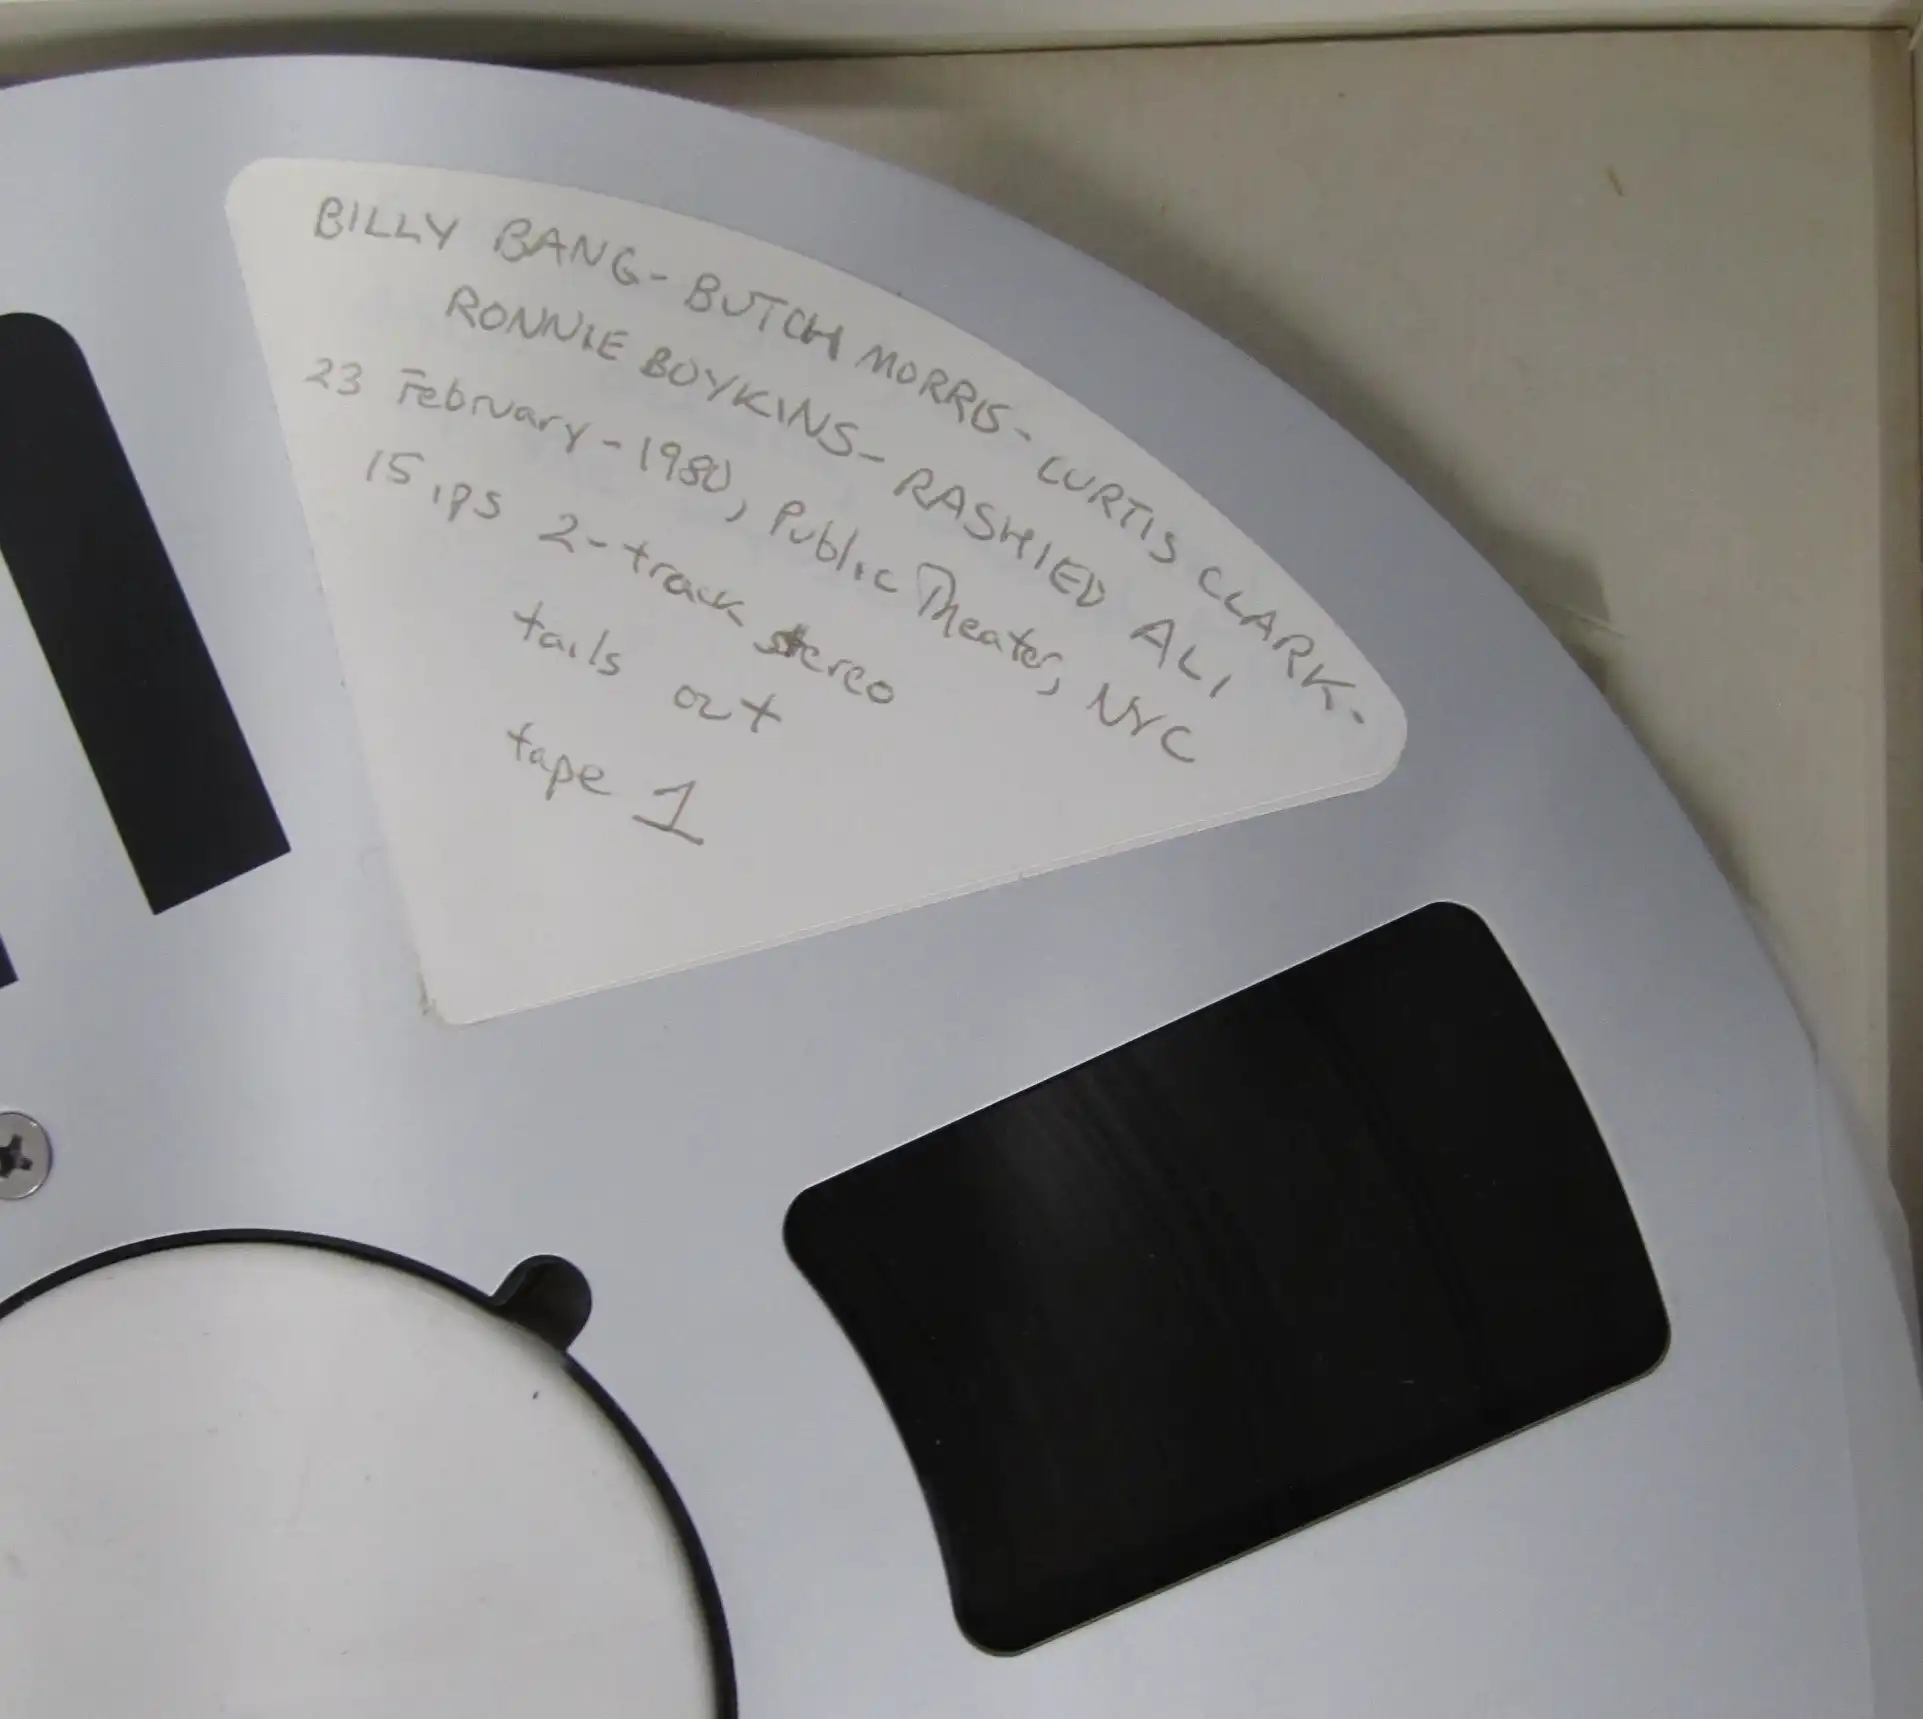 BILLY BANG - BUTCH MORRIS - CURTIS CLARK -
RONNIE BOYKINS - RASHIED ALI
23 February - 1980, Public Theater, NYC
15 ips 2-track stereo
tails out
tape 1